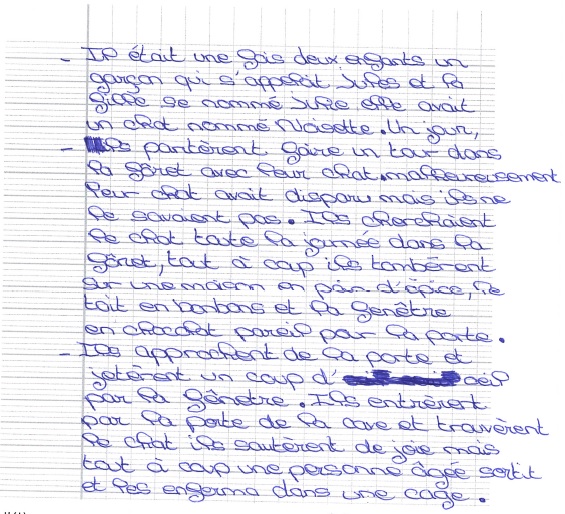 - Il était une fois deux enfants un
garçon qui s'appelait Jules et la
fille se nommé Julie elle avait
un chat nommé Noisette. Un jour,
- Ils partèrent faire un tour dans
la fôret avec leur chat. malheureusement
leur chat avait disparu mais ils ne
le savaient pas. Ils cherchaient
le chat toute la journée dans la
fôret, tout à coup ils tombèrent
sur une maison en pain d'épice, le
toit en bonbons et la fenêtre
en chocolat pareil pour la porte.
- Ils approchent de la porte et
jetèrent un coup d' oeil
par la fênetre. Ils entrèrent
par la porte de la cave et trouvèrent
le chat ils sautèrent de joie mais
tout à coup une personne âgée sortit
et les enferma dans une cage.